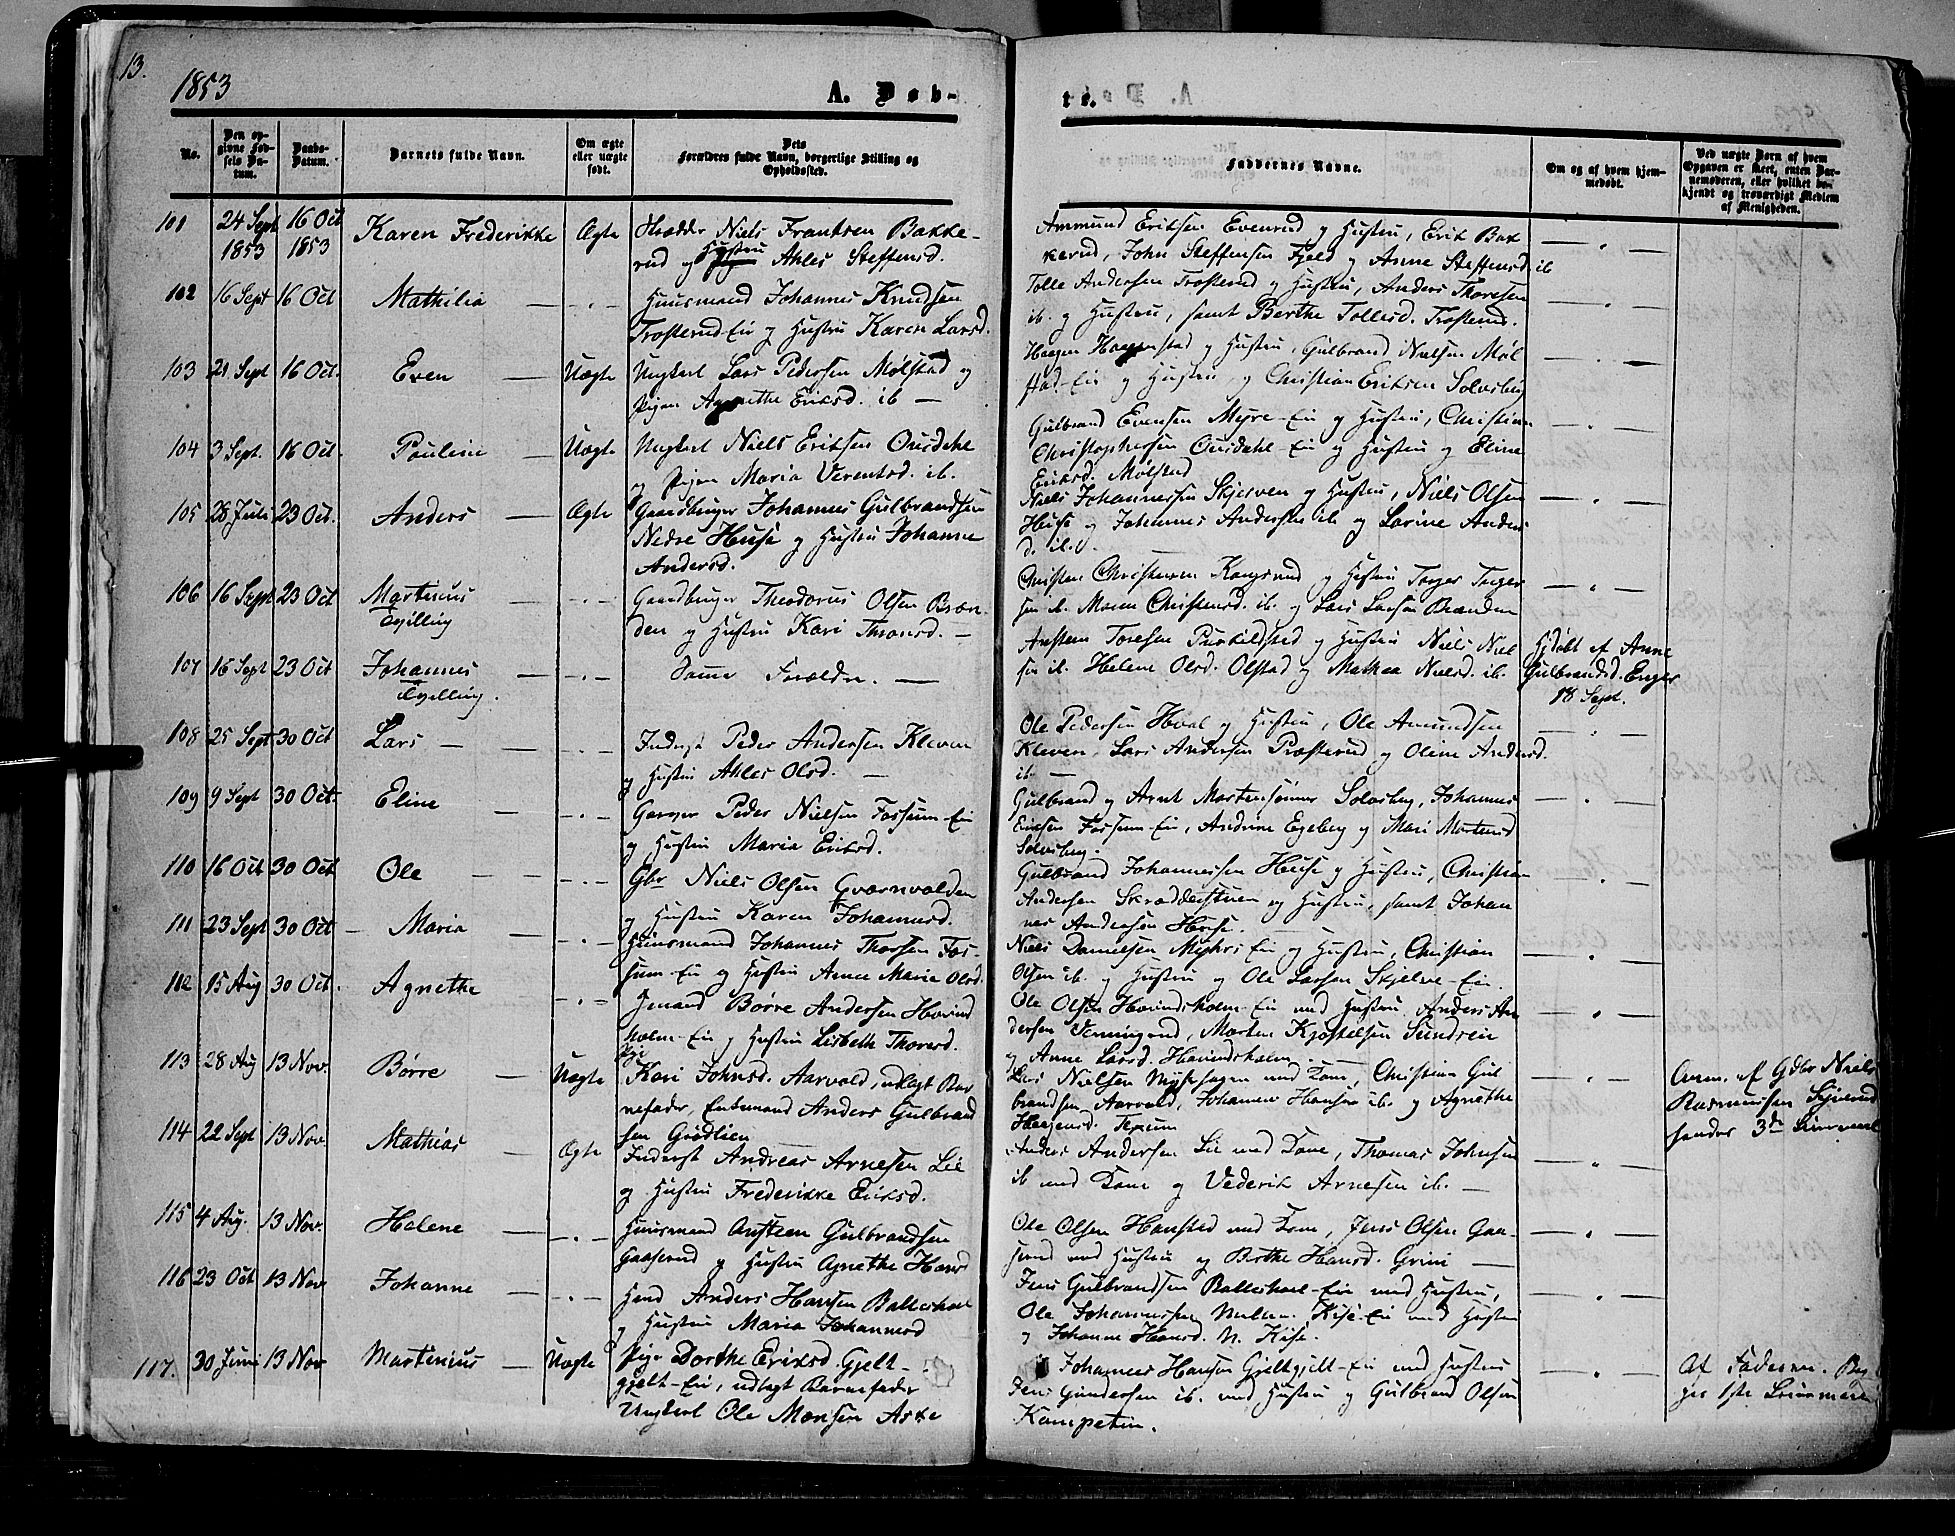 13.
1853
A. Døb-
te.
No.
Den op-
givne Fød-
sels Da-
tum.
Daabs-
Datum.
Barnets fulde Navn.
Om ægte
eller uægte
født.
Dets
Forældres fulde Navn, borgerlige Stilling og
Opholdssted.
Faddernes Navne.
Om og af hvem hjem-
medøbt.
Ved uægte Børn af hvem
Opgaven er skeet, enten Bar-
nemoderen, eller hvilket be-
kjendt og troværdigt Medlem
af Menigheden.
101 24 Sept 1853 16 Oct 1853 Karen Frederikke Ægte Niels Frantsen Bakke-
rud og Hustru Ahles Steffensd.
Ammund Eriksen Evenrud og Hustru, Erik Bak
kerud, John Steffensen Fjeld og Anne Steffensd ib
102 16 Sept 16 Oct Mathilia — " — Huusmand Johannes Knudsen
Trosterud-Eie og Hustru Karen Larsd.
Tolle Andersen Trosterud og Hustru, Anders Thoresen
ib. og Hustru, samt Berthe Tollesd. Trosterud.
103 21 Sept 16 Oct. Even — Uægte Ungkarl Lars Pedersen Mølstad og
Pigen Agnethe Eriksd. ib —
Haagen Haagenstad og Hustru, Gulbrand Nielsen Møl
stad-Eie og Hustru, og Christian Eriksen Solvsberg
104 3 Sept. 16 Oct. Pauline — Uægte Ungkarl Niels Eriksen Ousdahl
og Pigen Maria Verentsd. ib.
Gulbrand Evensen Myre-Eie og Hustru, Christian
Christophersen Ousdahl-Eie og Hustru og Eline
Eriksd. Mølstad
105 28 Juli 23 Oct. Anders — Ægte Gaardbruger Johannes Gulbrandsen
Nedre Huse og Hustru Johanne
Andersd.
Niels Johannessen Skjerven og Hustru, Niels Olsen
Huse og Johannes Andersen ib. og Larine Anders
d. ib.
106 16 Sept 23 Oct Martinus Tvilling — " — Gaardbruger Theodorus Olsen Bræn-
den og Hustru Kari Thronsd. —
Christen Christensen og Hustru Torger Torger
sen ib. Maren Christensd. ib. og Lars Larsen Brænden
107 16 Sept 23 Oct Johannes Tvilling. — " — Samme Forældre. —
Torsten og Hustru Niels Niel
sen ib. Helene Olsd. Olstad og Mathea Nielsd. ib.
Hjdøbt af Anne
Gulbrandsd. Enger
18 Sept.
108 25 Sept 30 Oct Lars — — " — Inderst Peder Andersen Kleven
og Hustru Ahles Olsd. —
Ole Pedersen Hval og Hustru, Ole Amundsen
Kleven, Lars Andersen Præsterud og Oline Andersd.
ib. —
109 9 Sept 30 Oct. Eline — " — Garver Peder Nielsen Fossum-Eie
og Hustru Maria Eriksd.
Gulbrand og Arnt Martensønner Solvsberg, Johannes
Eriksen Fossum-Eie, Andrine Egeberg og Mari Martensd
Solvsberg.
110 16 Oct 30 Oct Ole — " — Gbr Niels Olsen Qværnvolden
og Hustru Karen Johannesd.
Gulbrand Johannessen Huse og Hustru, Christian
Andersen Skrædderstuen og Hustru, samt Johan
nes Andersen Huse.
111 23 Sept 30 Oct Maria — " — Huusmand Johannes Thorsen Fos-
sum-Eie og Hustru Anne Marie Olsd.
Niels Danielsen Myhre Eie og Hustru, Christian
Olsen ib. og Hustru og Ole Larsen Skjelve-Eie.
112 15 Aug 30 Oct. Agnethe — " — Børre Andersen Hovind
holm-Eie og Hustru Lisbeth Thoresd.
Ole Olsen Hovindsholm-Eie med Hustru, Anders An
dersen Morten Kjostelsen
og Anne Larsd. Hovindsholm
113 28 Aug 13 Nov. Børre — Uægte Pige
Kari Johnsd. Aarvold, udlagt Bar
nefader, Enkemand Anders Gulbrand
sen Grødlien
Lars Nielsen med Kone, Christian Gul
brandsen Aarvold, Johannes Hansen ib. og Agnethe
Haagensd.
Anm. af Gdbr Niels
Rasmussen
3de Leiermaal
114 22 Sept 13 Nov. Mathias — Ægte Inderst Andreas Arnesen Lie
og Hustru Frederikke Eriksd.
Anders Andersen Lie med Kone, Thomas Johnsen
ib med Kone og Vederik Arnesen ib. —
115 4 Aug. 13 Nov. Helene — " — Huusmand Austeen Gulbrandsen
Gaaserud og Hustru Agnethe Hansd
Ole Olsen Hanstad med Kone, Jens Olsen Gaa-
serud med Hustru og Berthe Hansd. Grini —
116 23 Oct 13 Nov Johanne — " — Anders Hansen Ballishol
og Hustru Maria Johannesd
Jens Gulbrandsen Ballishol-Eie med Hustru,
Ole Johannessen Mellem Kise-Eie med Hustru
og Johanne Hansd. N. Kise.
117. 30 Juni 13 Nov Martinius — Uægte Pige Dorthe Eriksd. Gjelt-
gjelt-Eie, udlagt Barnefader
Ungkarl Ole Monsen Aske
Johannes Hansen Gjeltgjelt-Eie med Hustru
Jens Gundersen ib. med Hustru og Gulbrand Olsen
Kampetin.
Af Faderen. Beg
ges 1ste Leiermaal